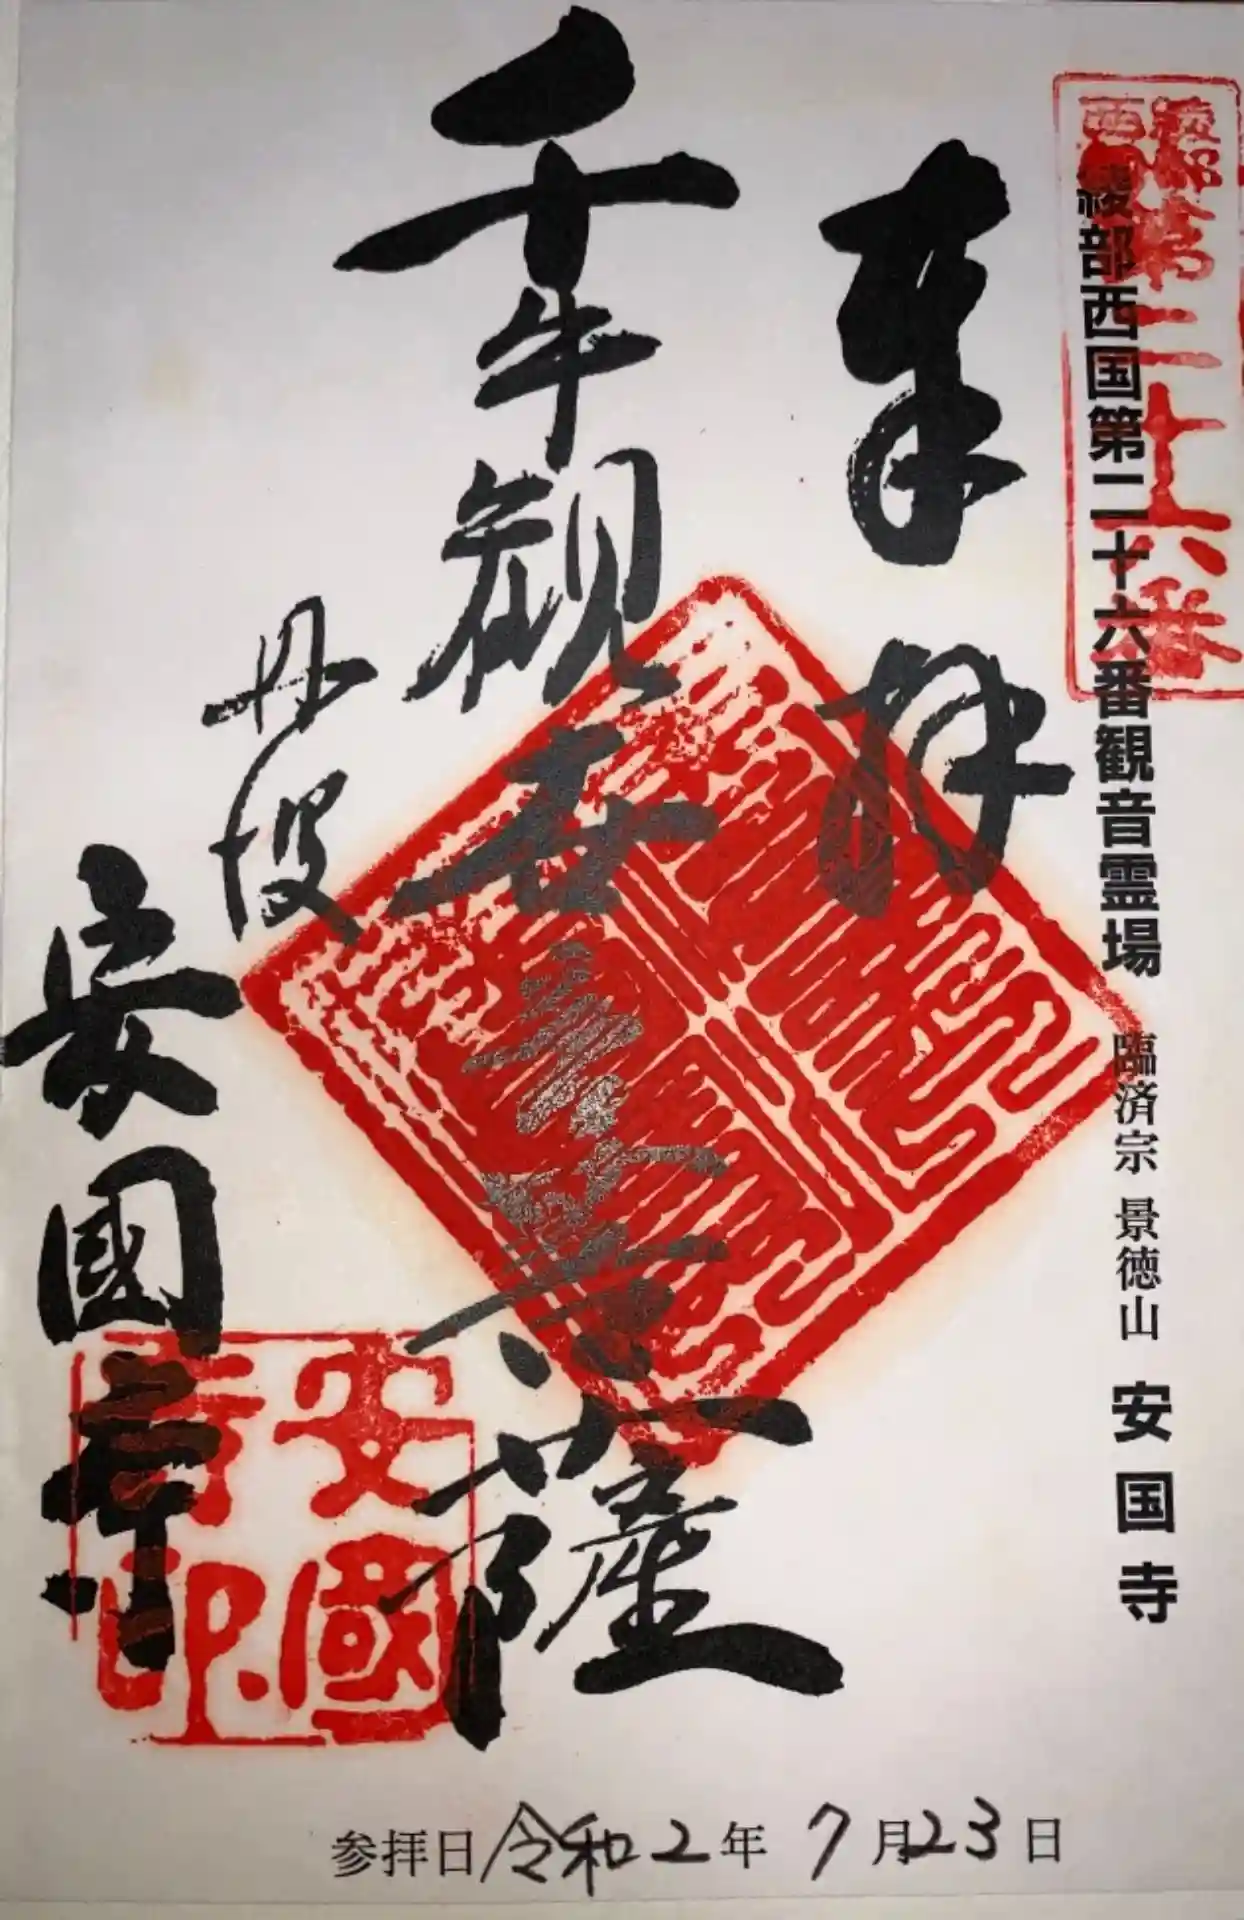 綾部西国第二十六番観音霊場 臨済宗 景徳山 安国寺
綾部西国
第二十六番
奉拝
千手観世音菩薩
丹波
安國寺
安國寺印
参拝日 令和2年7月23日